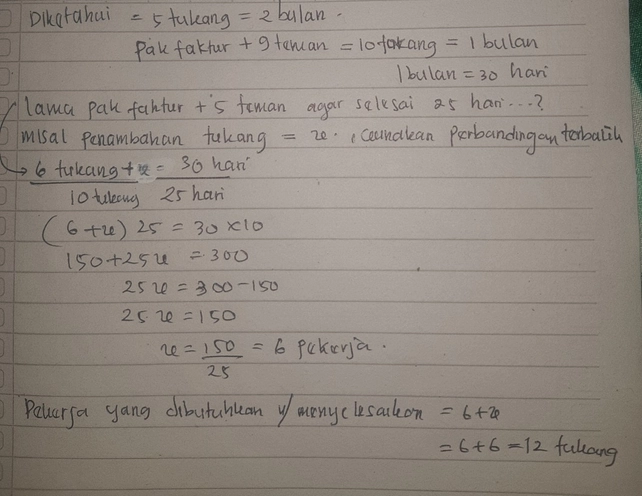 Diketahui = 5 tukang = 2 bulan.
Pak faktur + 9 teman = 10 tukang = 1 bulan
1 bulan = 30 hari
lama pak faktur + 5 teman agar selesai 25 hari...?
misal penambahan tukang = x. , Gunakan Perbandingan terbalik
→ 6 tukang + x = 30 hari
10 tukang 25 hari
(6+x) 25 = 30 x 10
150+25x = 300
25x = 300-150
25x = 150
x = 150/25 = 6 pekerja.
Pekerja yang dibutuhkan u/ menyelesaikan = 6+x
= 6+6 = 12 tukang